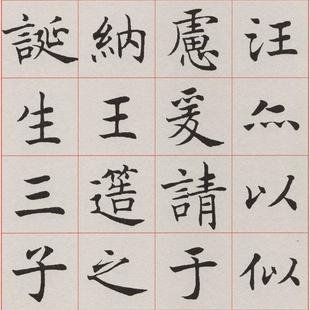 汪亦以似
慮爰請于
納王簉之
誕生三子